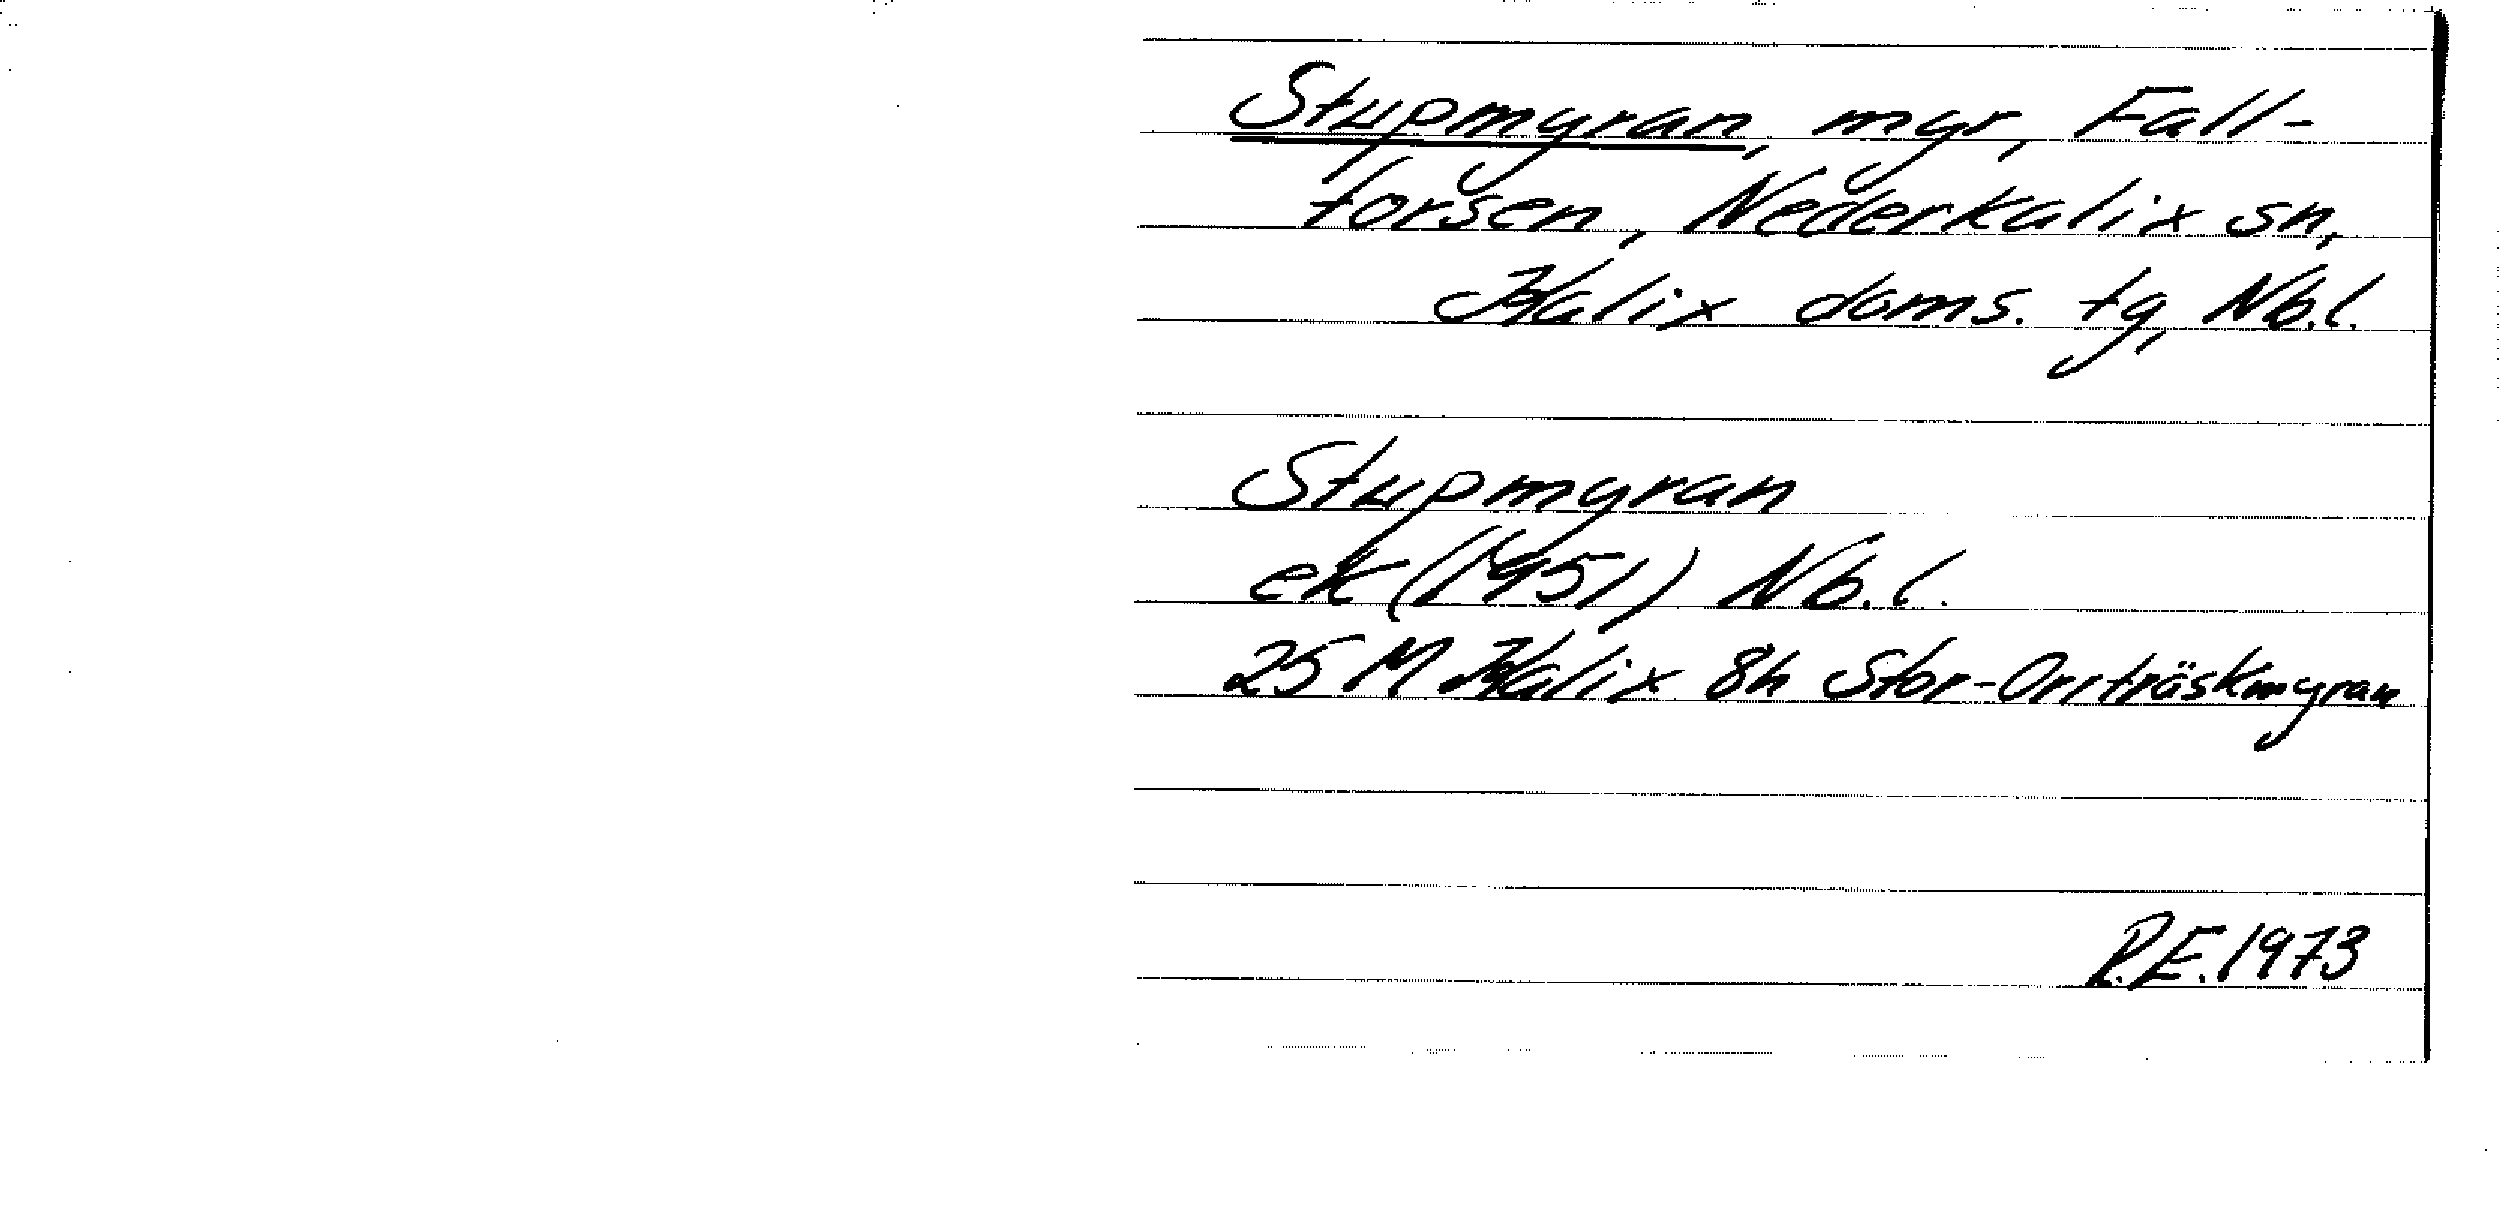 Stupmyran, myr, Fall-
forsen, Nederkalix sn,
Kalix doms. tg, Nb.l.
Stupmyran
ek (1951) Nb.l.
25 M Kalix 8h Stor-Orrträskmyran
R.E. 1973